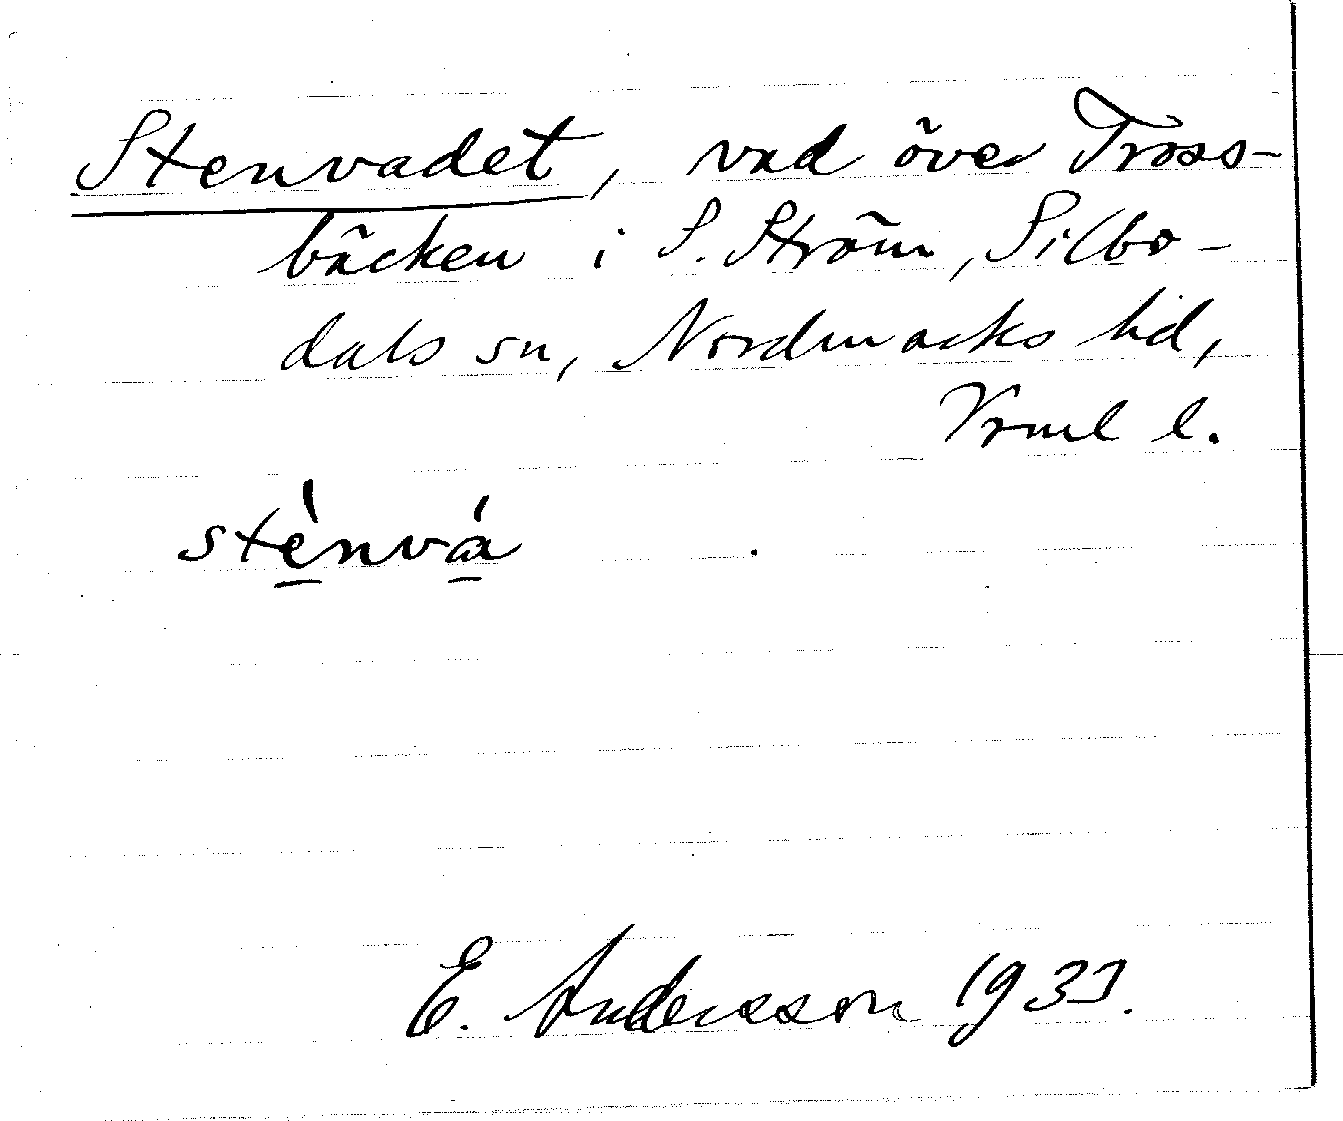 Stenvadet, vad över Tross-
bäcken i S. Ström, Silbo-
dals sn, Nordmarks hd,
Vrml l.
stènvá
E. Andersson 1933.